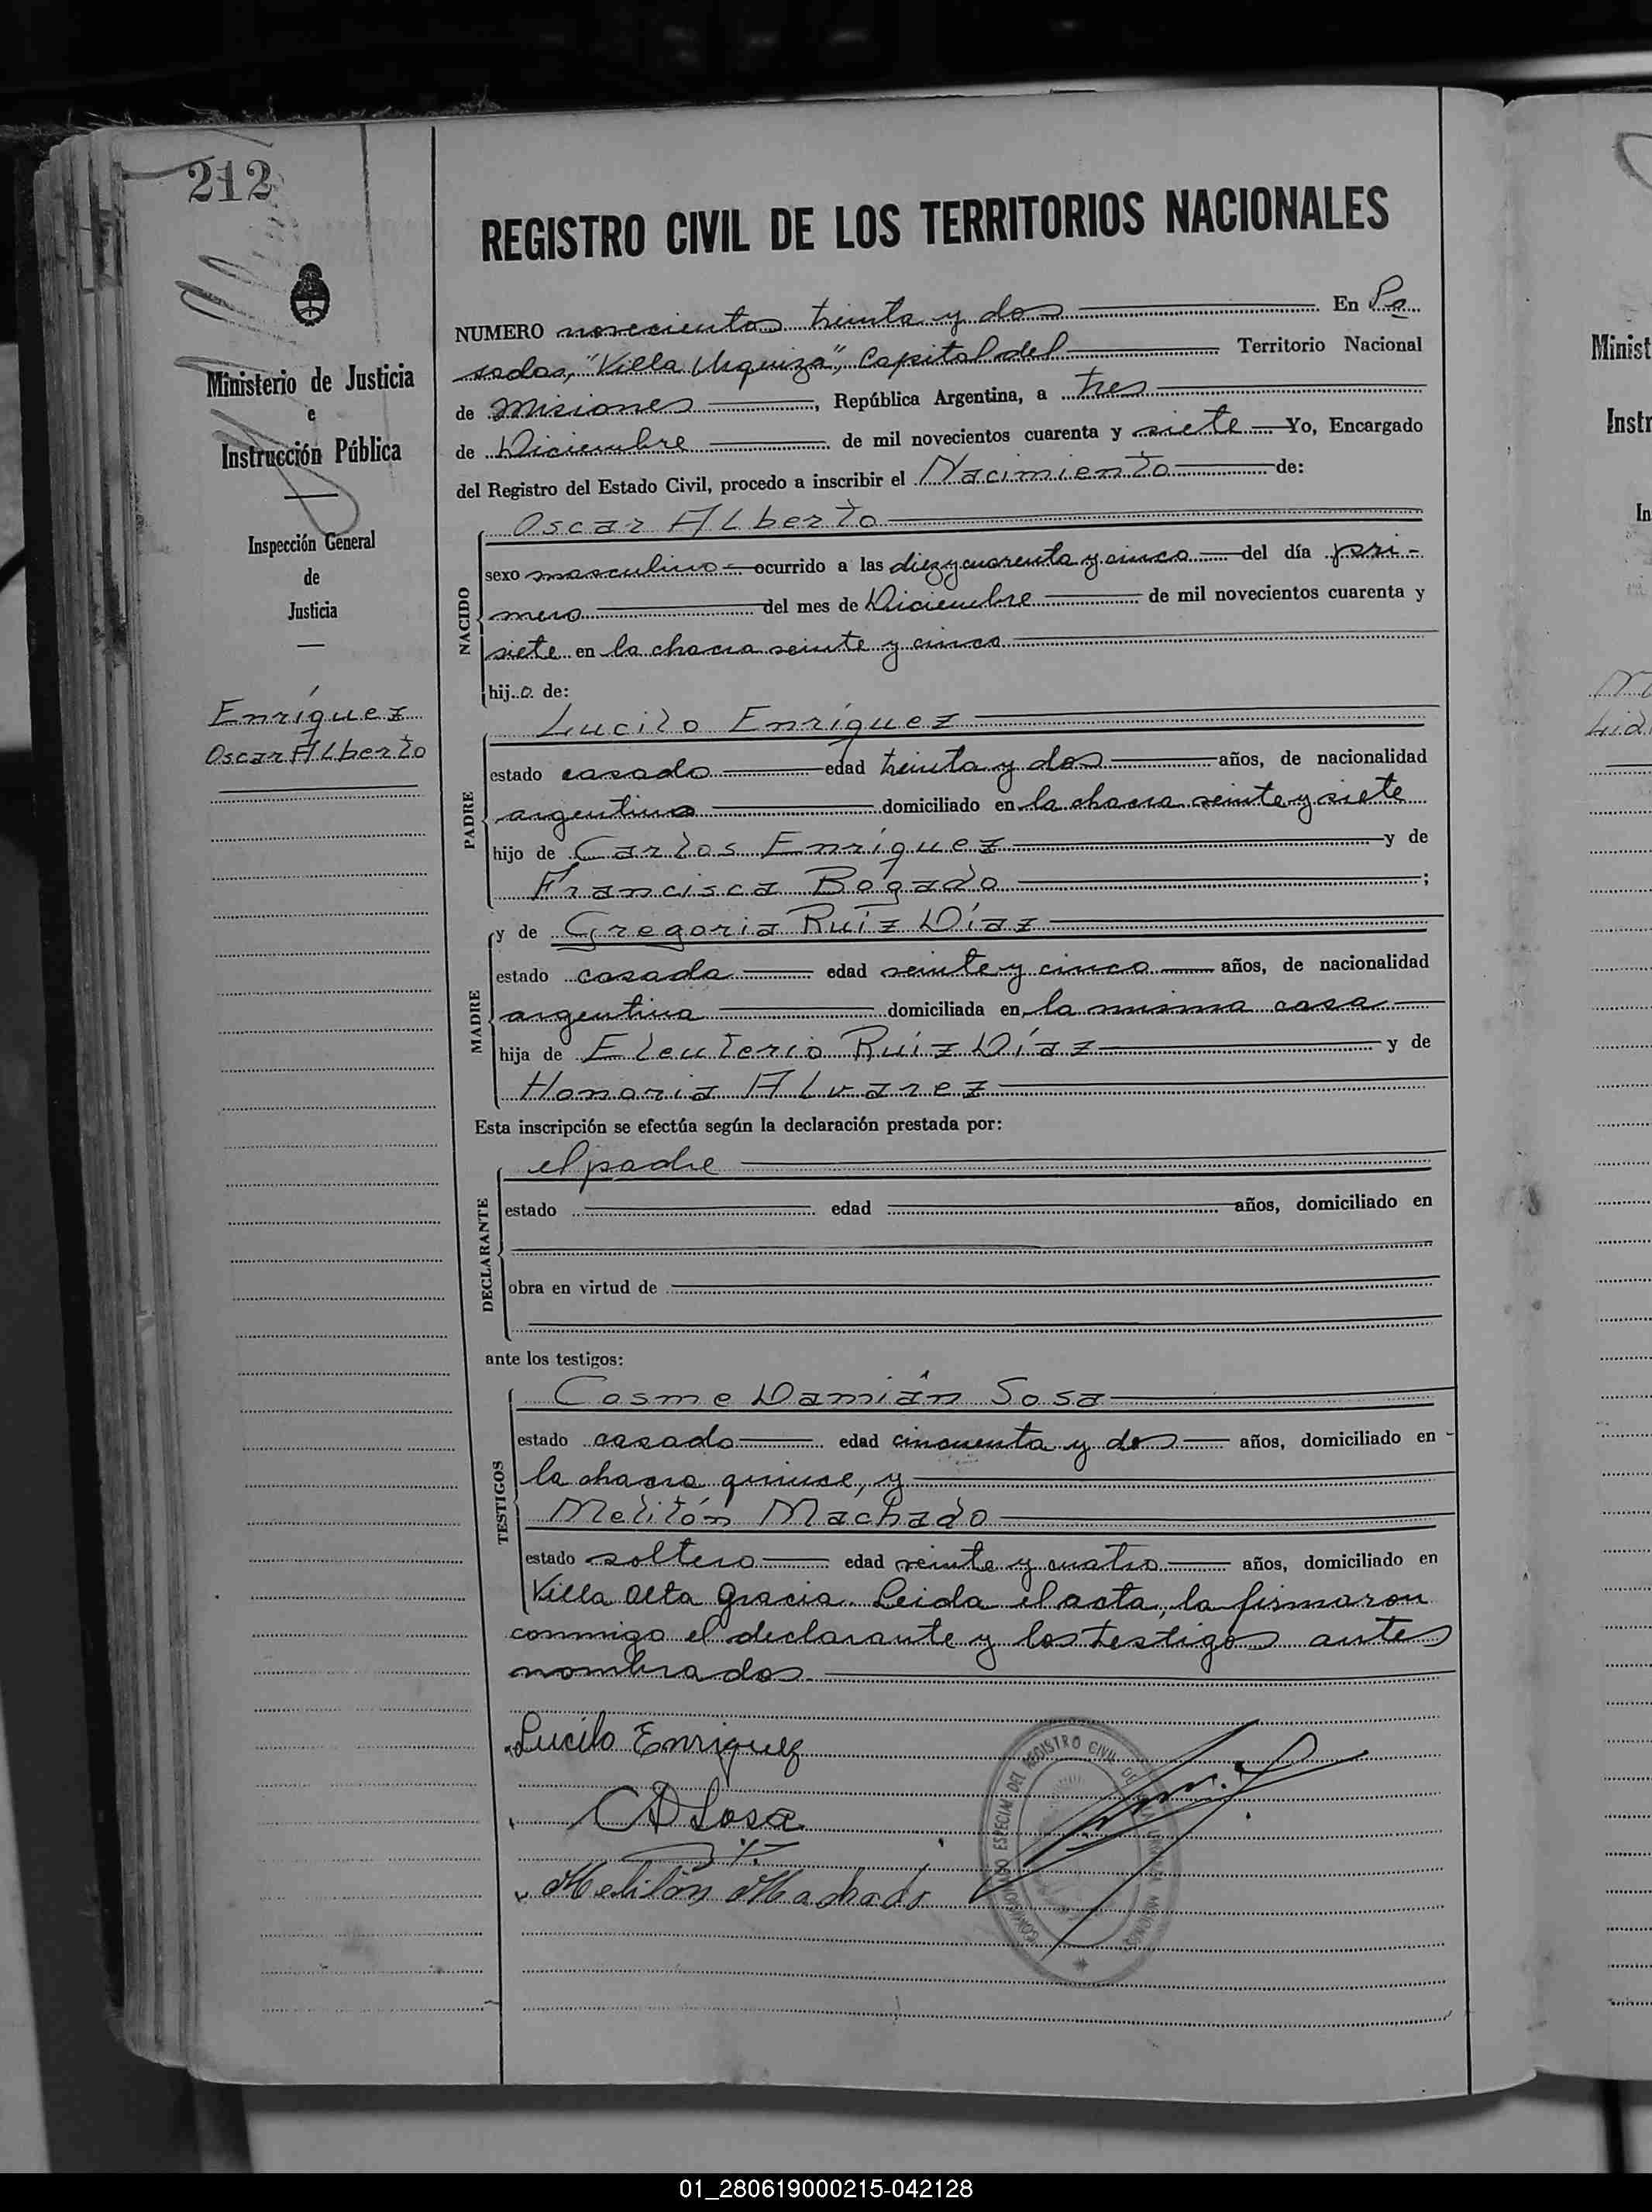 212
REGISTRO CIVIL DE LOS TERRITORIOS NACIONALES
Ministerio de Justicia
e
Instrucción Pública
Inspección General
de
Justicia
Enríquez
Oscar Alberto
NUMERO novecientos treinta y dos En Po
sadas, "Villa Urquiza", Capital del Territorio Nacional
de Misiones, República Argentina, a tres
de Diciembre de mil novecientos cuarenta y siete Yo, Encargado
del Registro del Estado Civil, procedo a inscribir el Nacimiento de:
NACIDO
Oscar Alberto
sexo masculino ocurrido a las diez y cuarenta y cinco del día pri-
mero del mes de Diciembre de mil novecientos cuarenta y
siete en la chacra veinte y cinco
hijo de:
PADRE
Lucilo Enríquez
estado casado edad treinta y dos años, de nacionalidad
argentina domiciliado en la chacra veinte y siete
hijo de Carlos Enríquez y de
Francisca Bogado ;
MADRE
y de Gregoria Ruíz Díaz
estado casada edad veinte y cinco años, de nacionalidad
argentina domiciliada en la misma casa
hija de Eleuterio Ruíz Díaz y de
Honoria Alvarez
Esta inscripción se efectúa según la declaración prestada por:
DECLARANTE
el padre
estado edad años, domiciliado en
obra en virtud de
ante los testigos:
TESTIGOS
Cosme Damián Sosa
estado casado edad cincuenta y dos años, domiciliado en
la chacra quince, y
Melitón Machado
estado soltero edad veinte y cuatro años, domiciliado en
Villa Alta Gracia. Leida el acta, la firmaron
conmigo el declarante y los testigos antes
nombrados.
Lucilo Enriquez
CD Sosa
Melitón Machado
ESPECIAL DEL REGISTRO CIVIL DE
Minist
Instr
In
01_280619000215-042128